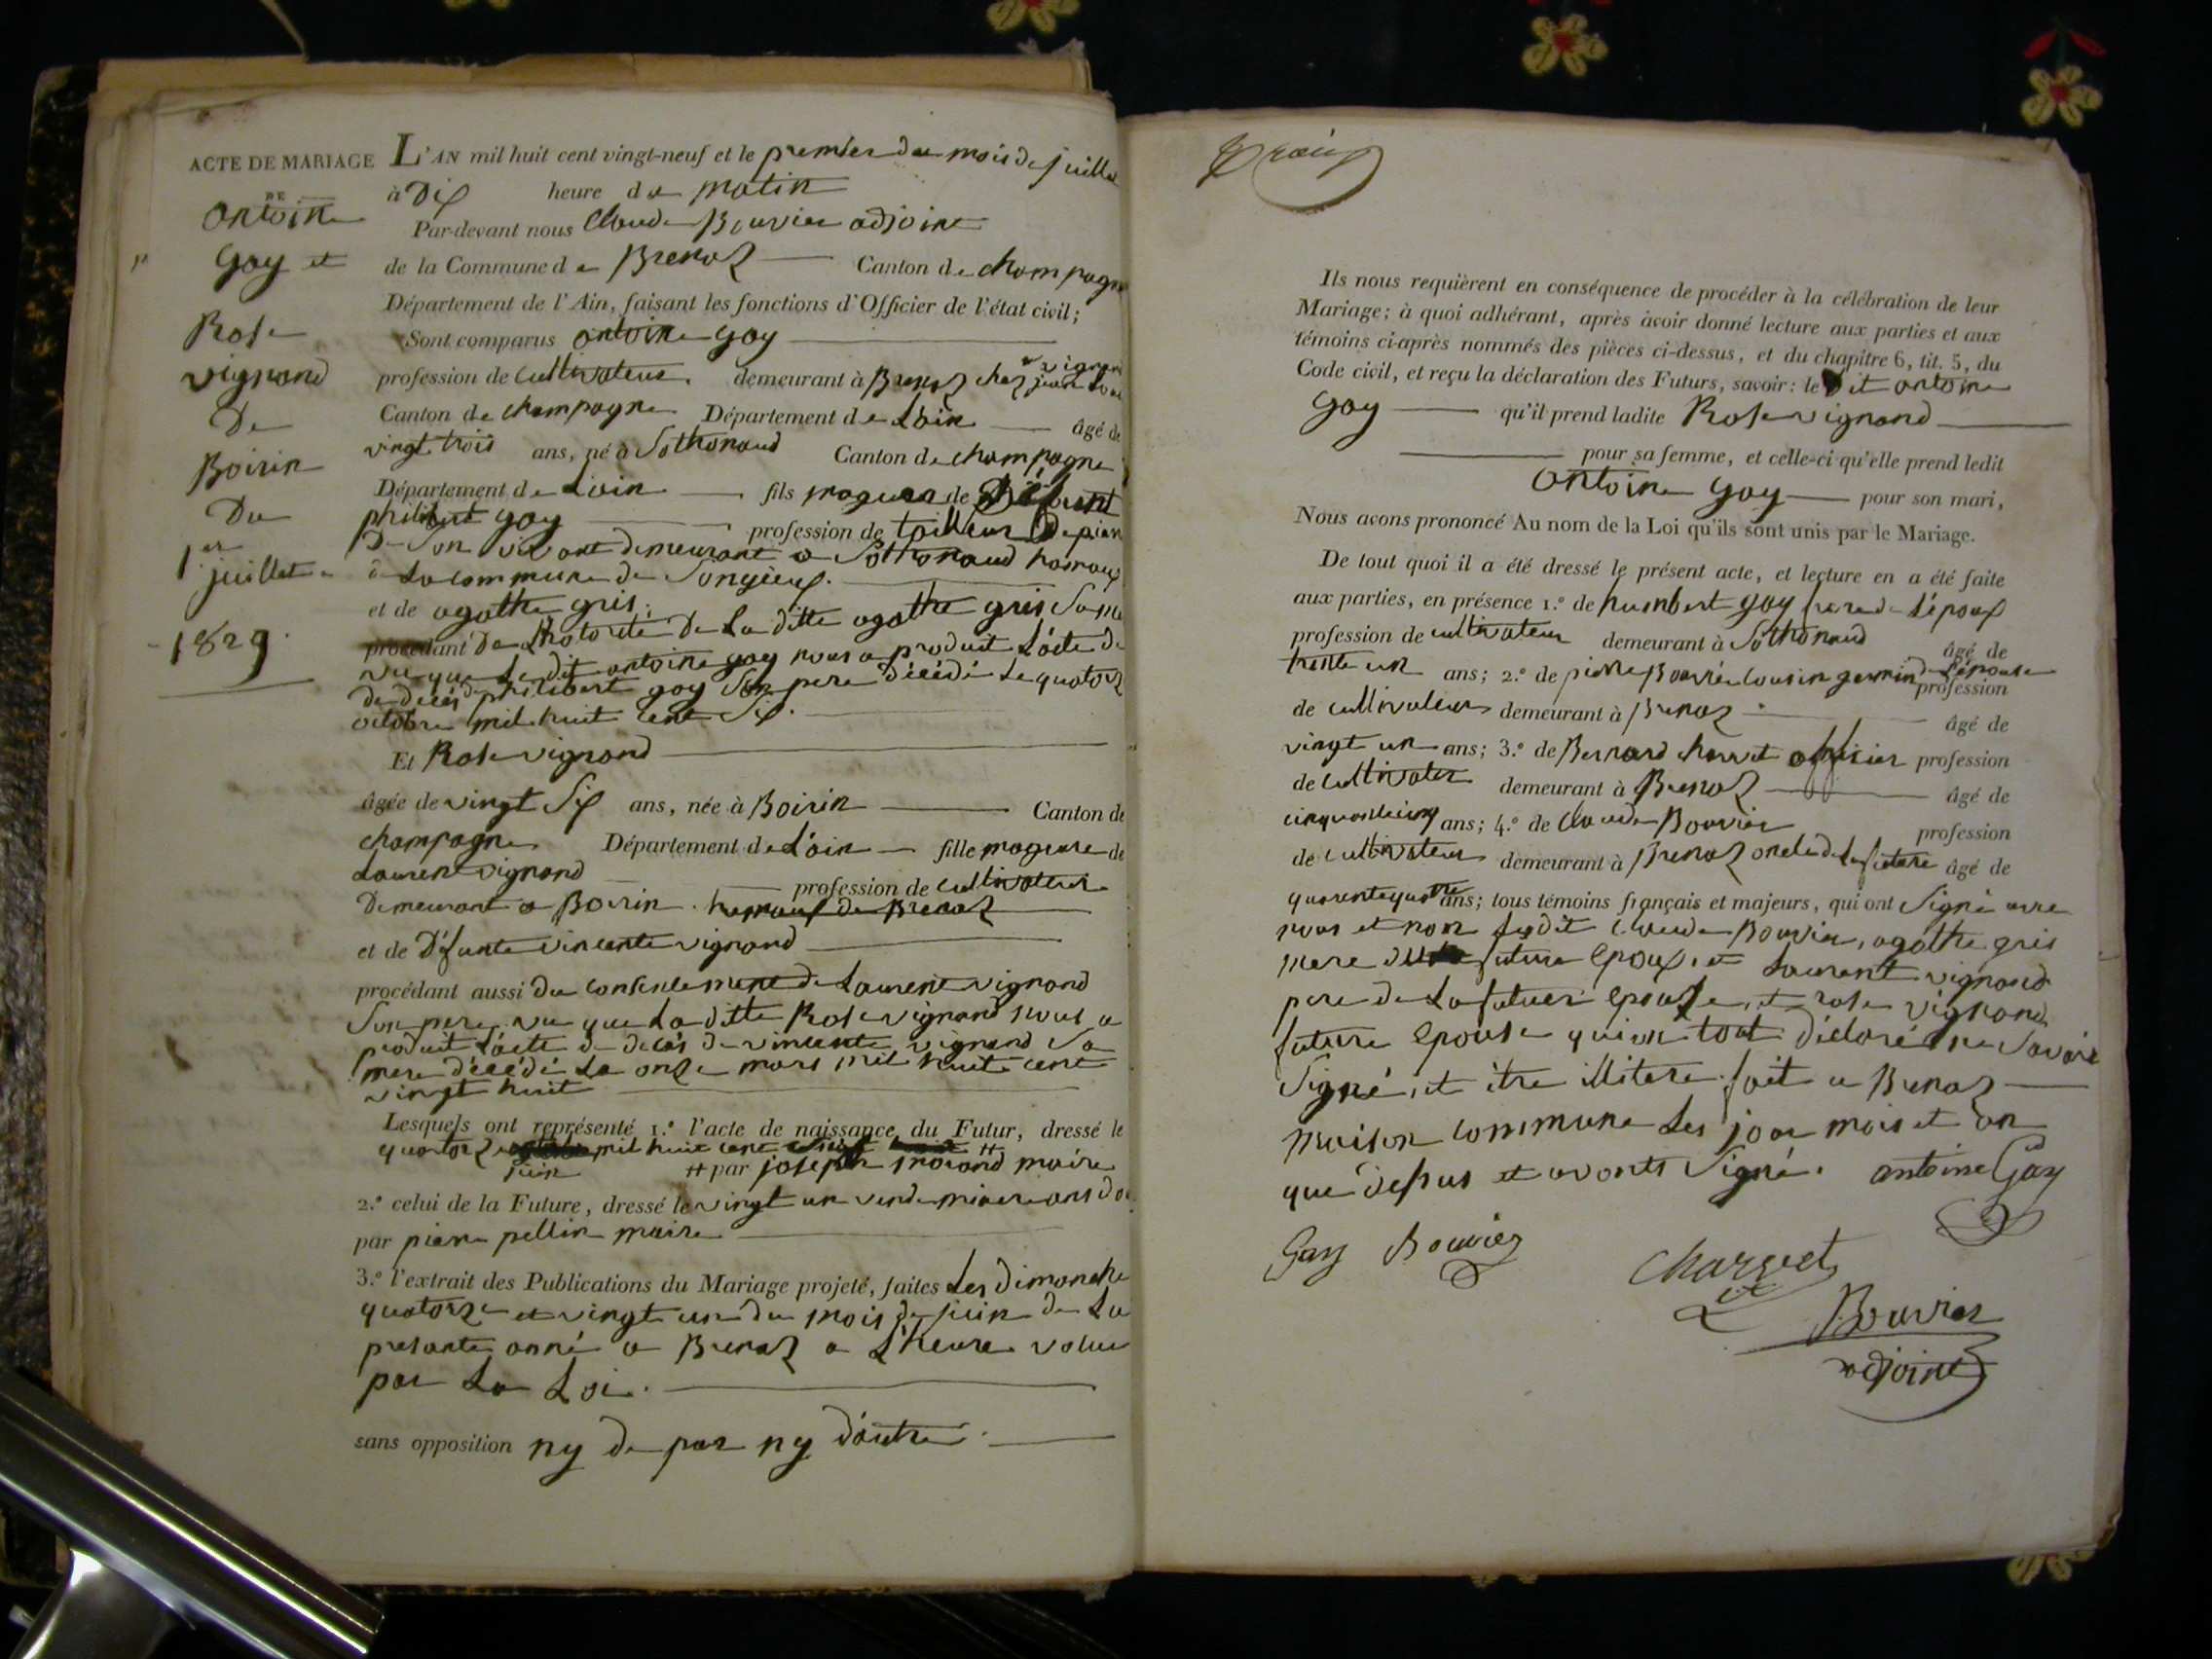 ACTE DE MARIAGE
DE
antoine
Goy et
Rose
vignand
De
Boirin
Du
1er
juillet
1829.
L'AN mil huit cent vingt-neuf et le premier du mois de juillet
à Dix heure du matin
Par-devant nous Claude Bouvier adjoint
de la Commune de Brenaz Canton de champagne
Département de l'Ain, faisant les fonctions d'Officier de l'état civil;
Sont comparus antoine Goy
profession de cultivateur demeurant à Brenaz chez
Canton de champagne Département de Lain âgé de
vingt trois ans, né à Sothonaud Canton de champagne
Département de Lain fils mageur de Défunt
philibert goy profession de tailleur De pier
De Son vivant demeurant a Sothonaud hamaux
de La commune de Songieux.
et de agathe gris.
procédant De Lhotorité De La ditte agathe gris Sa me
vu que Le dit antoine goy nous a produit L'acte de
de décès de philibert goy Son pere décédé Le quatorz
octobre mil huit cent Six.
Et Rose vignand
âgée de vingt Six ans, née à Boirin Canton de
champagne Département de L'ain fille mageure de
Laurent vignand profession de cultivateur
Demeurant a Boirin hamaux de Brenaz
et de Défunte vincente vignand
procédant aussi du consentement de Laurent vignand
Son pere, vu que La ditte Rose vignand nous a
produit L'acte de décès de vincente vignand Sa
mere décédé Le onze mars mil huit cent
vingt huit
Lesquels ont représenté 1.º l'acte de naissance du Futur, dressé le
quatorze mil huit cent
juin # par joseph maire
2.º celui de la Future, dressé le vingt un vendemiaire ans
par piere pellin maire
3.º l'extrait des Publications du Mariage projeté, faites Les dimanche
quatorze et vingt un du mois de juin de La
presante anné a Brenaz a L'heure volue
par La Loi.
sans opposition ny de par ny d'autre.
Ils nous requièrent en conséquence de procéder à la célébration de leur
Mariage; à quoi adhérant, après avoir donné lecture aux parties et aux
témoins ci-après nommés des pièces ci-dessus, et du chapitre 6, tit. 5, du
Code civil, et reçu la déclaration des Futurs, savoir: le dit antoine
Goy qu'il prend ladite Rose vignand
pour sa femme, et celle-ci qu'elle prend ledit
antoine Goy pour son mari,
Nous avons prononcé Au nom de la Loi qu'ils sont unis par le Mariage.
De tout quoi il a été dressé le présent acte, et lecture en a été faite
aux parties, en présence 1.º de humbert goy frere de L'époux
profession de cultivateur demeurant à Sothonaud âgé de
trente un ans; 2.º de pierre Bouvier cousin germin de L'épouse profession
de cultivateur demeurant à Brenaz âgé de
vingt un ans; 3.º de Bernard charvet officier profession
de cultivater demeurant à Brenaz âgé de
cinquantecinq ans; 4.º de Claude Bouvier profession
de cultivateur demeurant à Brenaz oncle de La future âgé de
quarentequatre ans; tous témoins français et majeurs, qui ont Signé avec
nous et non Ledit Claude Bouvier, agathe gris
mere du future Epoux, et Laurent vignand
pere de La future épouse, et rose vignand
future Epouse qui on tout déclaré ne Savoir
Signé, et itre illitere. fait a Brenaz
maison commune Les jour mois et an
que dessus et avonts Signé. antoine Goy
Goy Bouvier
Charvet
Bouvier
adjoint